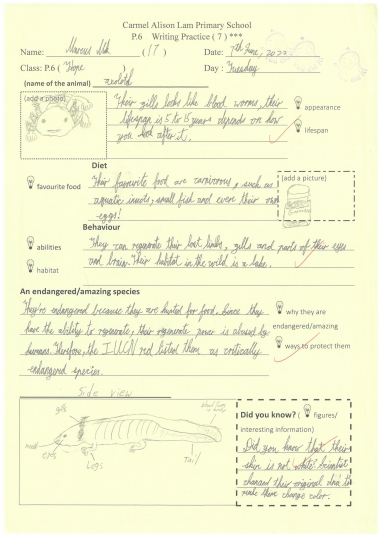 Carmel Alison Lam Primary School
P.6 Writing Practice ( 7 ) ***
Name: Marcus Mak ( 17 ) Date: 7th June, 2022
Class: P.6 ( Hope ) Day : Tuesday
(name of the animal) axolotl
(add a photo)
Their gills looks like blood worms, their
lifespan is 5 to 15 years depends on how
you look after it.
appearance
lifespan
Diet
favourite food
Their favourite food are carnivorous, such as
aquatic insects, small fish and even their own
eggs!
(add a picture)
Behaviour
abilities
habitat
They can regenerate their lost limbs, gills and parts of their eyes
and brain. Their habitat in the wild is a lake.
An endangered/amazing species
They're endangered because they are hunted for food. Since they
have the ability to regenerate, their regenerate power is abused by
humans. Therefore, the IUCN red listed them as critically
endangered species.
why they are
endangered/amazing
ways to protect them
Side view
gills
eyes
Legs
Tail
Did you know? ( figures/
interesting information)
Did you know that their
skin is not white? Scientist
changed their original DNA to
made them change color.